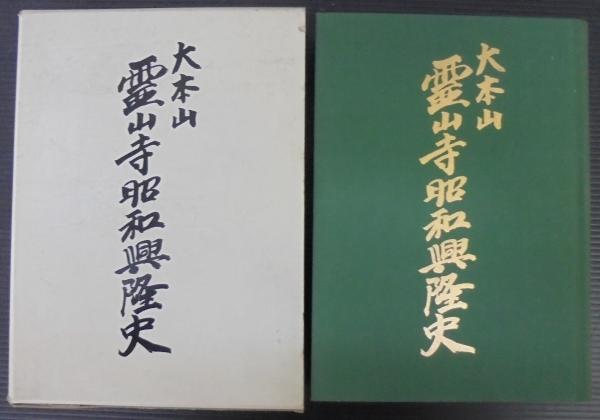 大本山
靈山寺昭和興隆史
大本山
靈山寺昭和興隆史